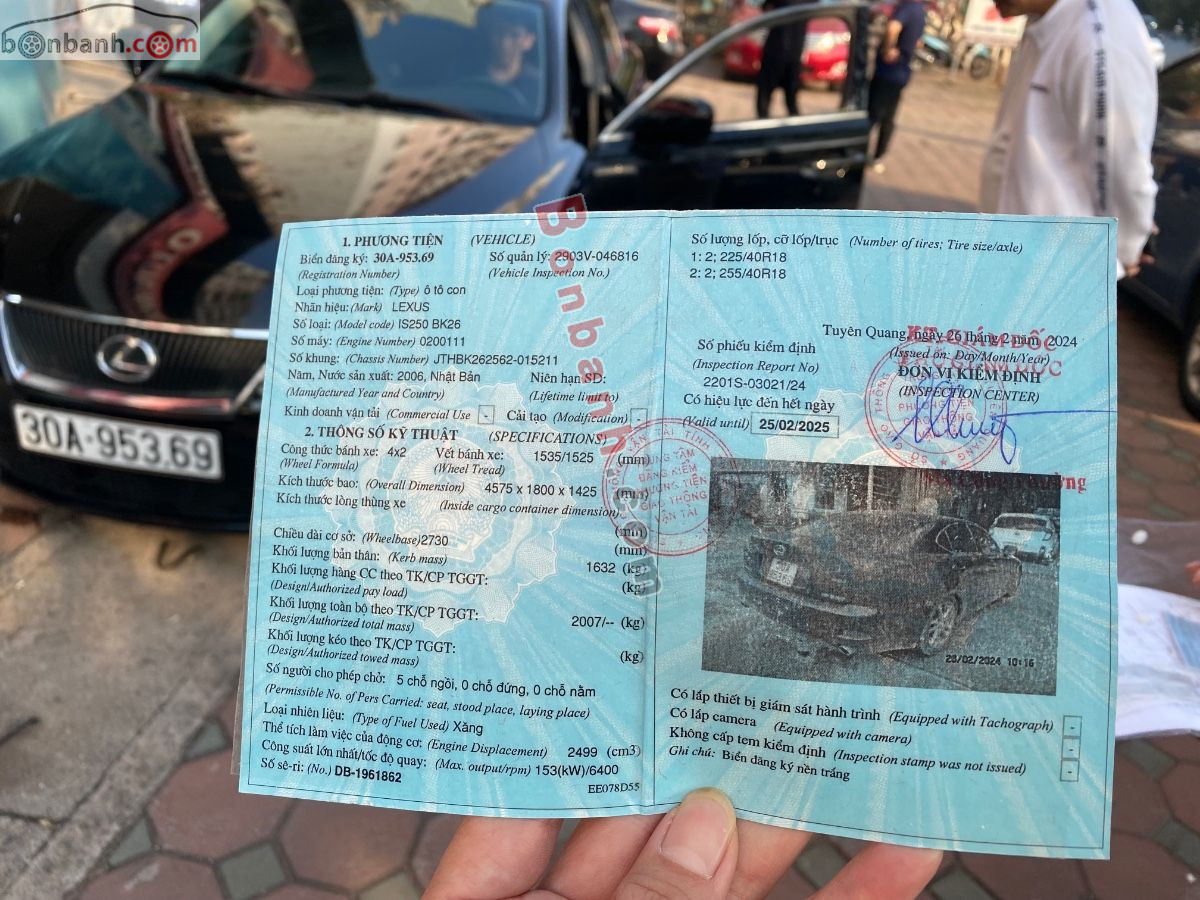 bonbanh.com
30A-953.69
Bonbanh.com
1. PHƯƠNG TIỆN (VEHICLE)
Biển đăng ký: 30A-953.69 Số quản lý: 2903V-046816
(Registration Number) (Vehicle Inspection No.)
Loại phương tiện: (Type) ô tô con
Nhãn hiệu: (Mark) LEXUS
Số loại: (Model code) IS250 BK26
Số máy: (Engine Number) 0200111
Số khung: (Chassis Number) JTHBK262562-015211
Năm, Nước sản xuất: 2006, Nhật Bản Niên hạn SD:
(Manufactured Year and Country) (Lifetime limit to)
Kinh doanh vận tải (Commercial Use - Cải tạo (Modification) -
2. THÔNG SỐ KỸ THUẬT (SPECIFICATIONS)
Công thức bánh xe: 4x2 Vết bánh xe: 1535/1525 (mm)
(Wheel Formula) (Wheel Tread)
Kích thước bao: (Overall Dimension) 4575 x 1800 x 1425 (mm)
Kích thước lòng thùng xe (Inside cargo container dimension)
(mm)
Chiều dài cơ sở: (Wheelbase) 2730 (mm)
Khối lượng bản thân: (Kerb mass) 1632 (kg)
Khối lượng hàng CC theo TK/CP TGGT: (kg)
(Design/Authorized pay load)
Khối lượng toàn bộ theo TK/CP TGGT: 2007/-- (kg)
(Design/Authorized total mass)
Khối lượng kéo theo TK/CP TGGT: (kg)
(Design/Authorized towed mass)
Số người cho phép chở: 5 chỗ ngồi, 0 chỗ đứng, 0 chỗ nằm
(Permissible No. of Pers Carried: seat, stood place, laying place)
Loại nhiên liệu: (Type of Fuel Used) Xăng
Thể tích làm việc của động cơ: (Engine Displacement) 2499 (cm3)
Công suất lớn nhất/tốc độ quay: (Max. output/rpm) 153(kW)/6400
Số sê-ri: (No.) DB-1961862
EE078D55
Số lượng lốp, cỡ lốp/trục (Number of tires; Tire size/axle)
1: 2; 225/40R18
2: 2; 255/40R18
Tuyên Quang, ngày 26 tháng 2 năm 2024
(Issued on: Day/Month/Year)
Số phiếu kiểm định
(Inspection Report No)
2201S-03021/24
ĐƠN VỊ KIỂM ĐỊNH
(INSPECTION CENTER)
Có hiệu lực đến hết ngày
(Valid until) 25/02/2025
TRUNG TÂM
ĐĂNG KIỂM
PHƯƠNG TIỆN
GIAO THÔNG
VẬN TẢI
26/02/2024 10:16
Có lắp thiết bị giám sát hành trình (Equipped with Tachograph) -
Có lắp camera (Equipped with camera) -
Không cấp tem kiểm định (Inspection stamp was not issued) -
Ghi chú: Biển đăng ký nền trắng